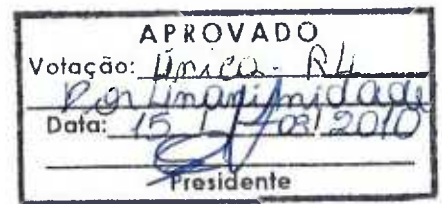 APROVADO
Votação: Única - RU
Por Unanimidade
Data: 15 / 03 / 2010
Presidente